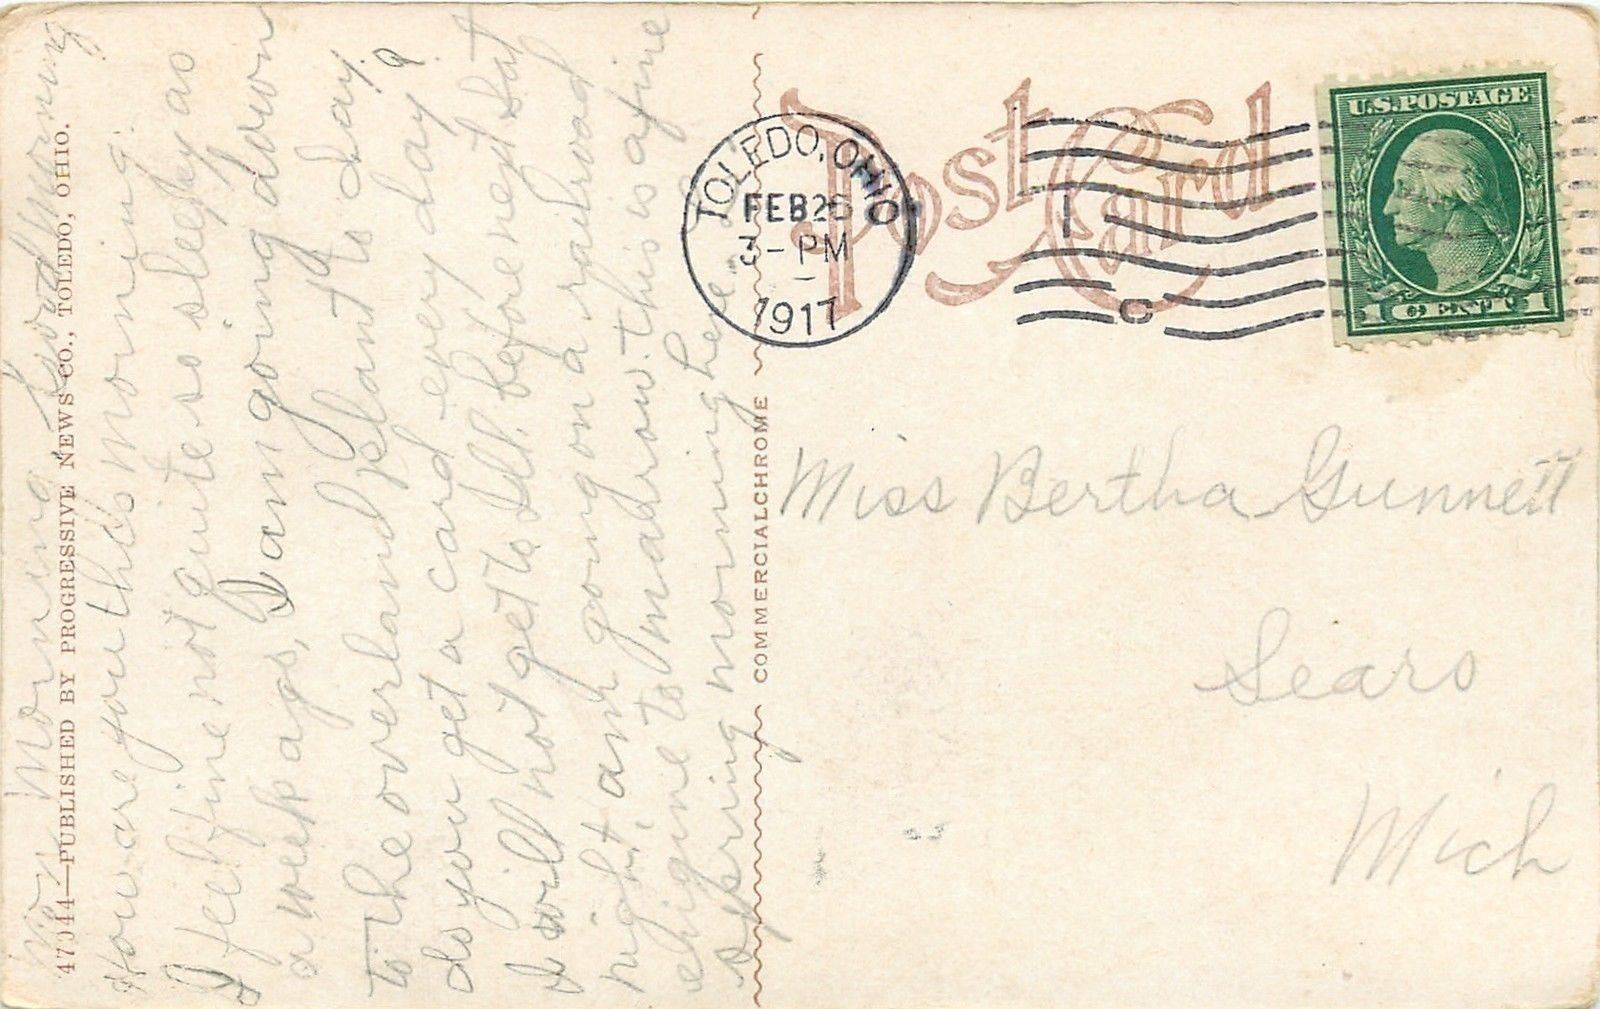 Mon Morning, Good Morning
How are you this morning.
I feel fine not quite so sleepy as
a week ago, I am going down
to the overland plant to day.
do you get a card every day?
I will not get to Ill. before next Sat
night, am going on a railroad
engine to madrrow. this is a fine
spring morning here.
47044—PUBLISHED BY PROGRESSIVE NEWS CO., TOLEDO, OHIO.
COMMERCIALCHROME
Post Card
TOLEDO, OHIO
FEB 26
3-PM
1917
1
C
U.S. POSTAGE
1 CENT 1
Miss Bertha Gunnett
Sears
Mich